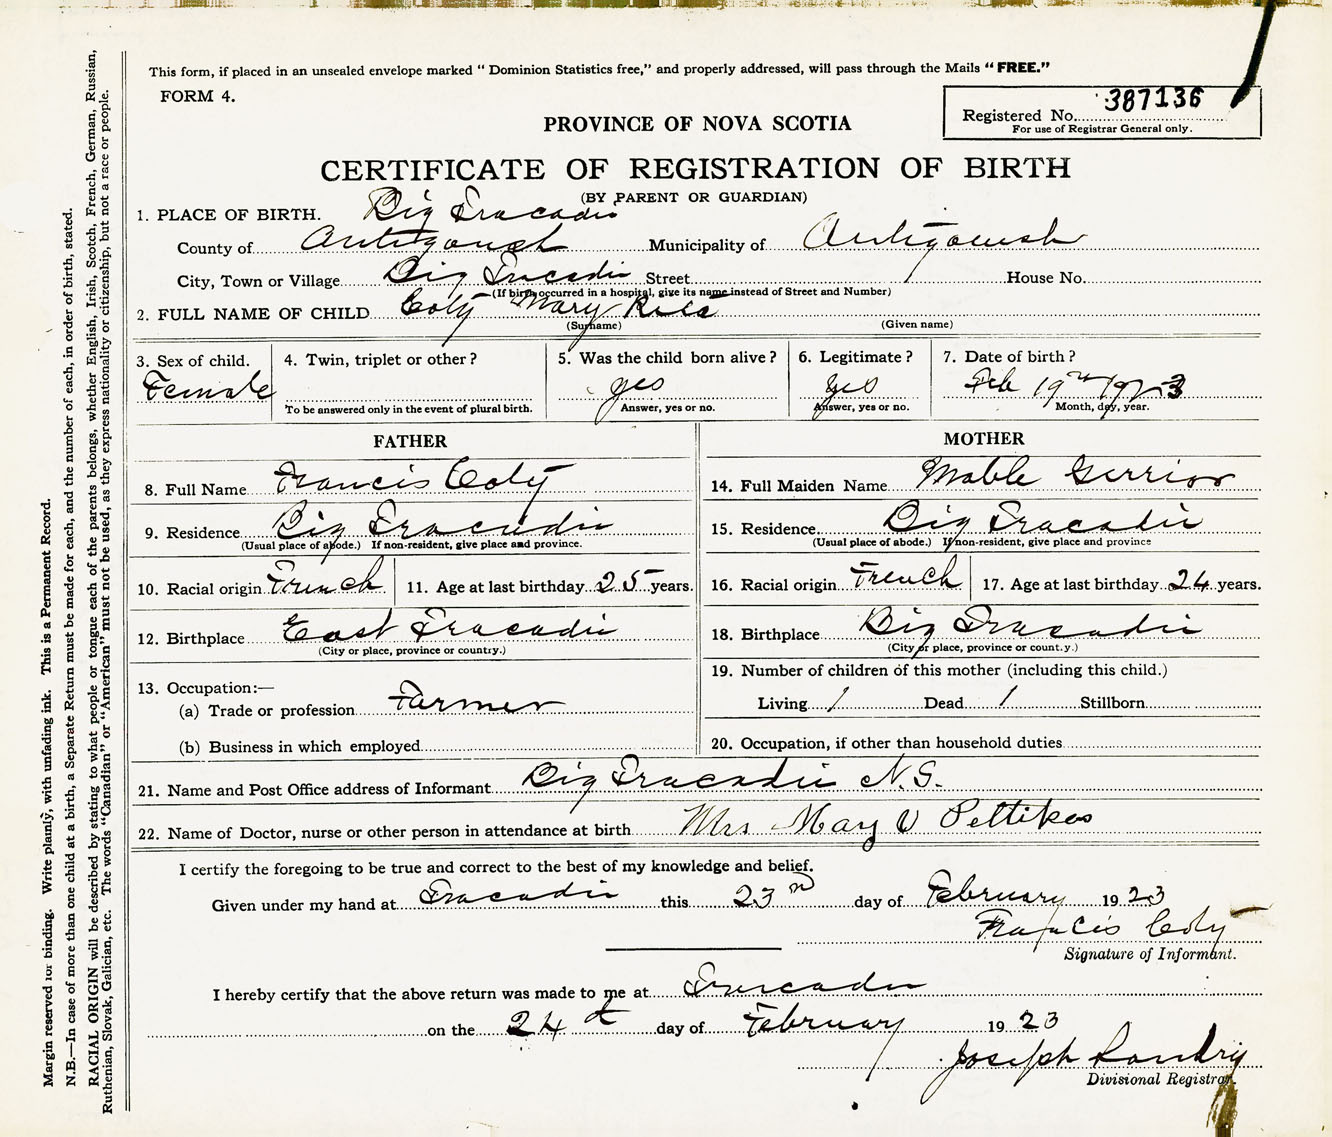 This form, if placed in an unsealed envelope marked " Dominion Statistics free," and properly addressed, will pass through the Mails " FREE."
FORM 4.
Registered No. 387136
For use of Registrar General only.
PROVINCE OF NOVA SCOTIA
CERTIFICATE OF REGISTRATION OF BIRTH
(BY PARENT OR GUARDIAN)
1. PLACE OF BIRTH. Big Tracadie
County of Antigonish Municipality of Antigonish
City, Town or Village Big Tracadie Street House No.
(If birth occurred in a hospital, give its name instead of Street and Number)
2. FULL NAME OF CHILD Coty Mary Rita
(Surname) (Given name)
3. Sex of child. 4. Twin, triplet or other ? 5. Was the child born alive ? 6. Legitimate ? 7. Date of birth ?
Female yes yes Feb 19th 1923
To be answered only in the event of plural birth. Answer, yes or no. Answer, yes or no. Month, day, year.
FATHER MOTHER
8. Full Name Francis Coty 14. Full Maiden Name Mable Gerrior
9. Residence Big Tracadie 15. Residence Big Tracadie
(Usual place of abode.) If non-resident, give place and province. (Usual place of abode.) If non-resident, give place and province
10. Racial origin French 11. Age at last birthday 25 years. 16. Racial origin French 17. Age at last birthday 24 years.
12. Birthplace East Tracadie 18. Birthplace Big Tracadie
(City or place, province or country.) (City or place, province or count.y.)
19. Number of children of this mother (including this child.)
13. Occupation:—
(a) Trade or profession Farmer Living 1 Dead 1 Stillborn
(b) Business in which employed 20. Occupation, if other than household duties
21. Name and Post Office address of Informant Big Tracadie N.S.
22. Name of Doctor, nurse or other person in attendance at birth Mrs Mary V Pettikas
I certify the foregoing to be true and correct to the best of my knowledge and belief.
Given under my hand at Tracadie this 23 day of February 1923
Francis Coty
Signature of Informant.
I hereby certify that the above return was made to me at Tracadie
on the 24 day of February 1923
Joseph Landry
Divisional Registrar.
Margin reserved for binding. Write plainly, with unfading ink. This is a Permanent Record.
N.B.—In case of more than one child at a birth, a Separate Return must be made for each, and the number of each, in order of birth, stated.
RACIAL ORIGIN will be described by stating to what people or tongue each of the parents belongs, whether English, Irish, Scotch, French, German, Russian,
Ruthenian, Slovak, Galician, etc. The words "Canadian" or "American" must not be used, as they express nationality or citizenship, but not a race or people.